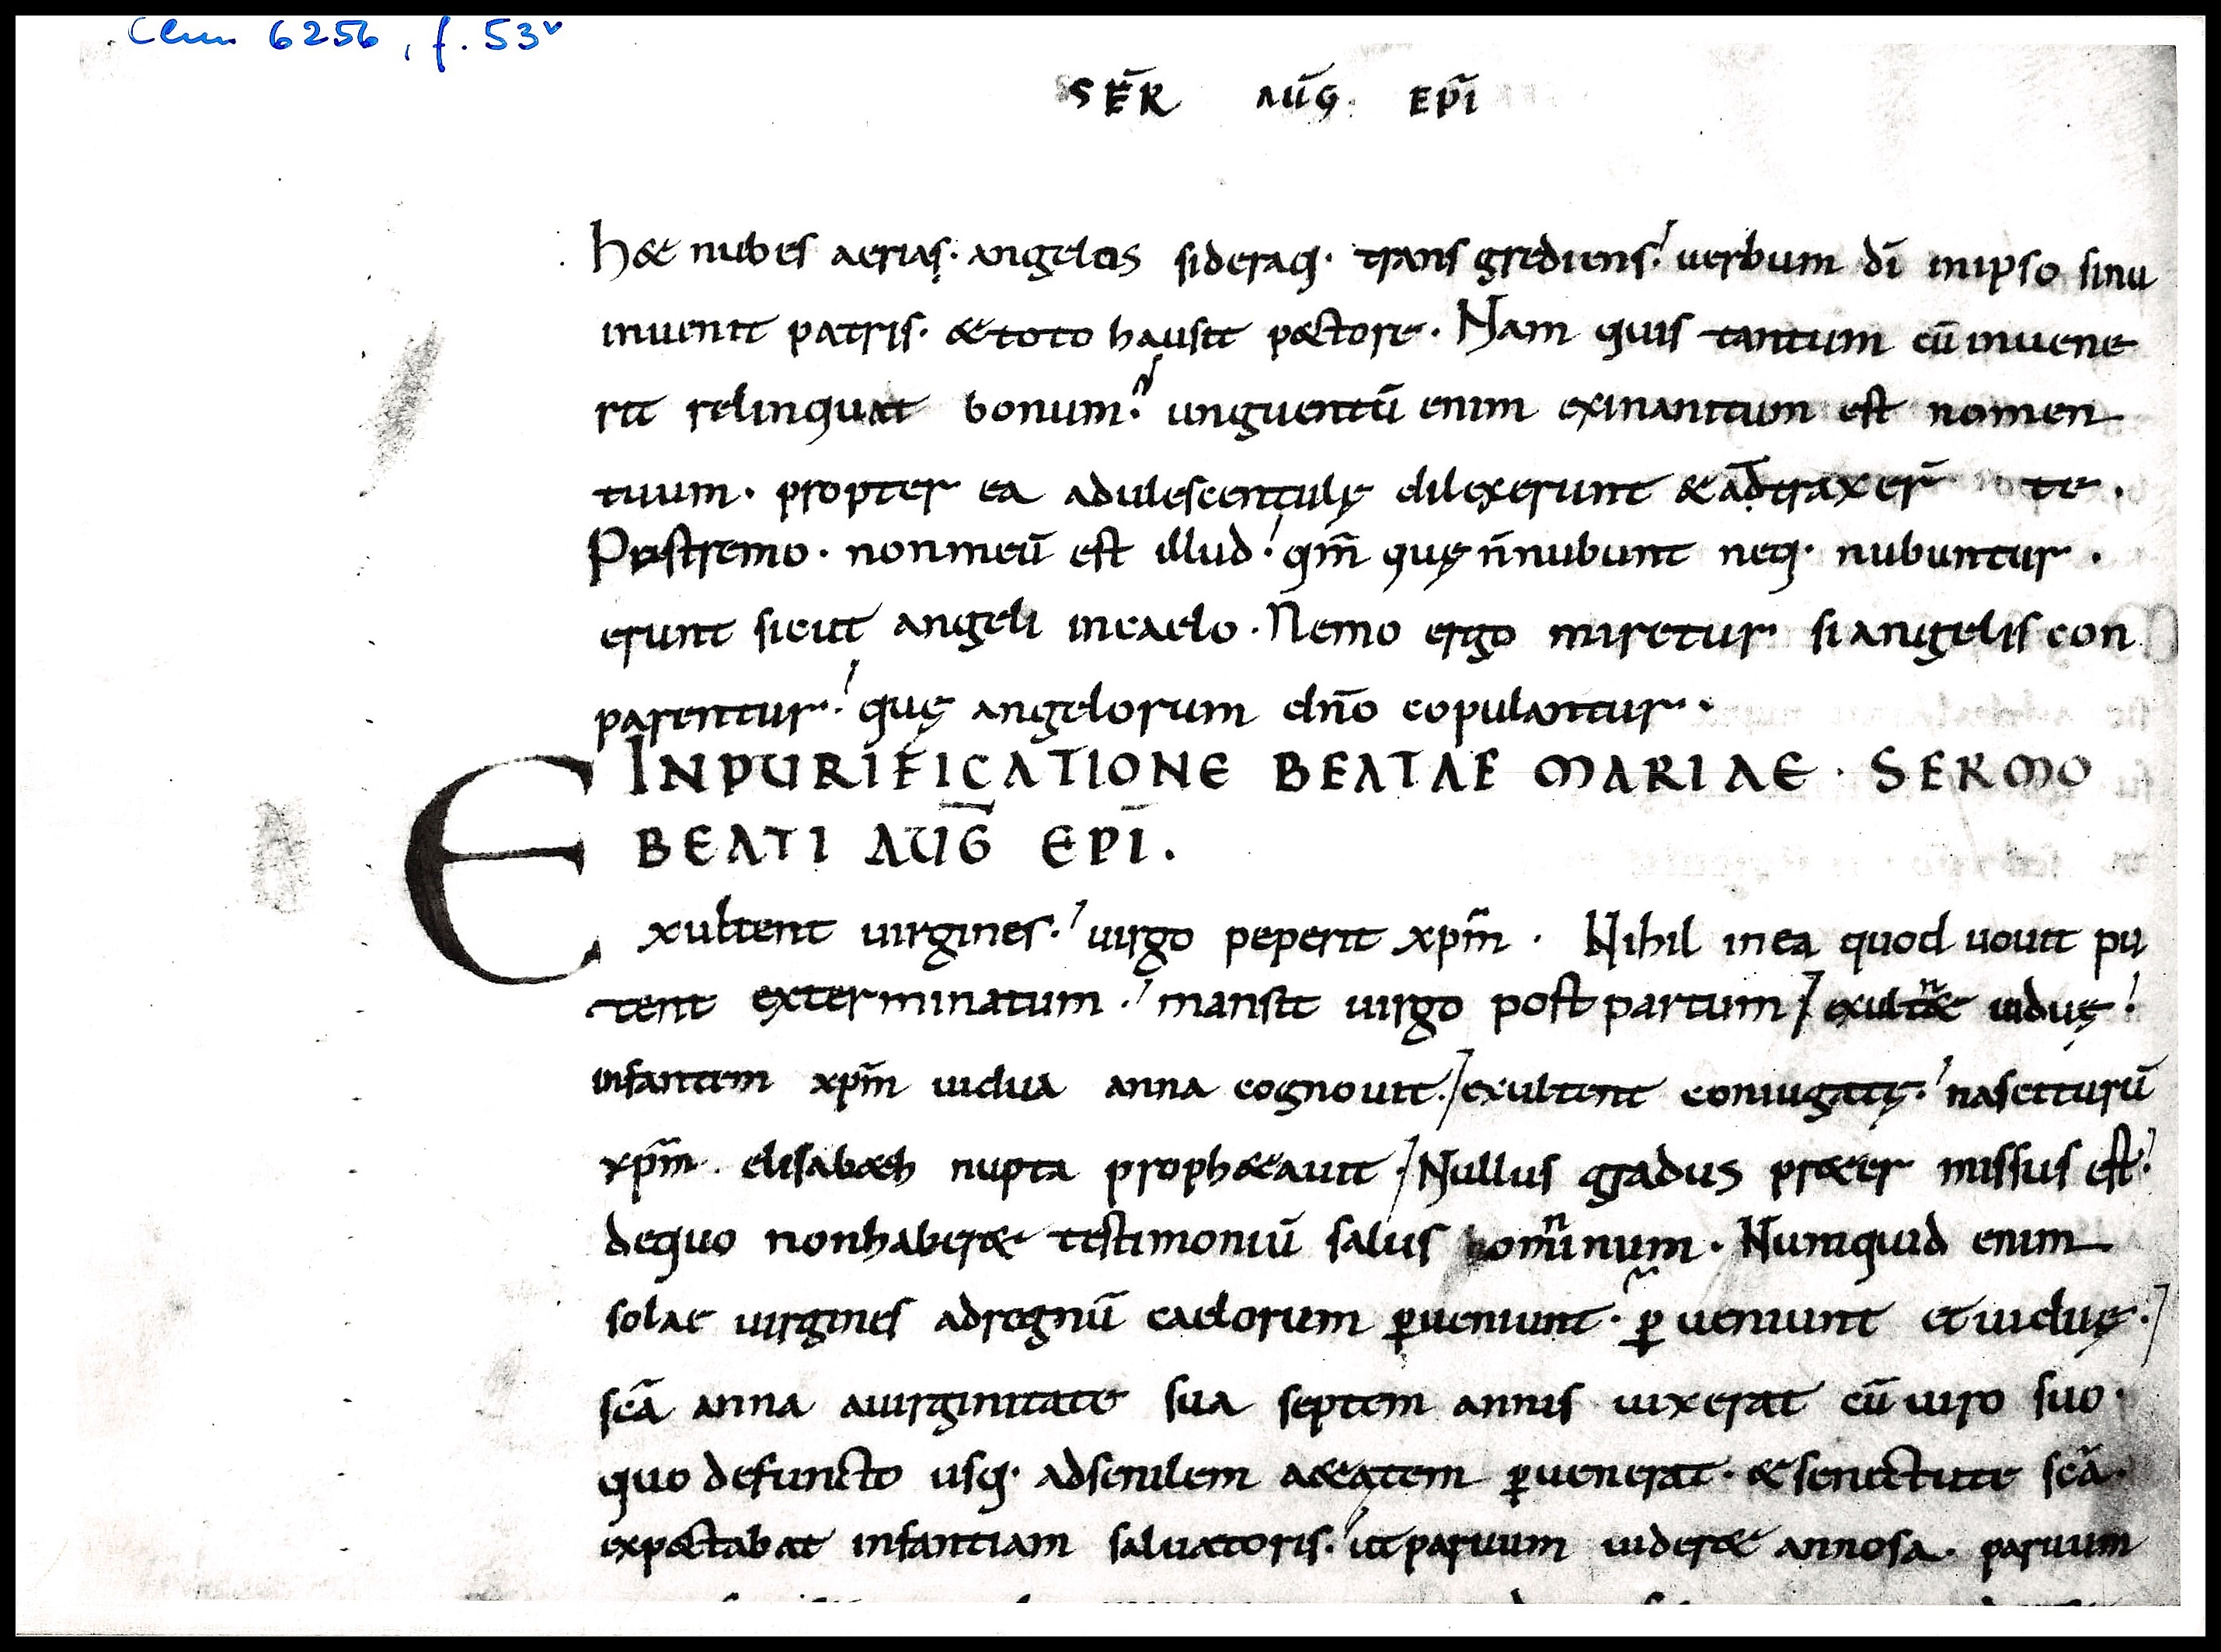 Clm 6256, f. 53v
SER̄ AUḠ. EP̄I
h& nubes aerias· angelos sideraq· transgrediens· uerbum dī inipso sinu
inuenit patris· &toto hausit p&ctore· Nam quis tantum cū inuene
rit relinquat bonum? unguentū enim exinanitum est nomen
tuum· propter ea adulescentulę dilexerunt &adtraxer̄ te·
Postremo· nonmeū est illud· qm̄ quę n̄nubunt neq· nubuntur·
erunt sicut angeli incaelo· Nemo ergo miretur si angelis con
parentur· quę angelorum dn̄o copulantur·
INPURIFICATIONE BEATAE MARIAE· SERMO
BEATI AUḠ EPĪ·
Exultent uirgines· uirgo peperit xpm̄· Nihil inea quod uouit pu
tent exterminatum· mansit uirgo post partum· exult&ⁿ uiduę·
infantem xpm̄ uidua anna cognouit· exultent coniugatę· nasciturū
xpm̄· elisab&h nupta proph&auit· Nullus gradus pr&er missus est·
dequo nonhaber& testimoniū salus hominum· Numquid enim
solae uirgines adregnū caelorum ꝑueniunt· ꝑ ueniunt et uiduę·
sc̄a anna auirginitate sua septem annis uixerat cū uiro suo·
quo defuncto usq· adsenilem a&atem ꝑuenerat· &senectute sc̄a·
exp&ctabat infantiam saluatoris· ut paruum uider& annosa· paruum